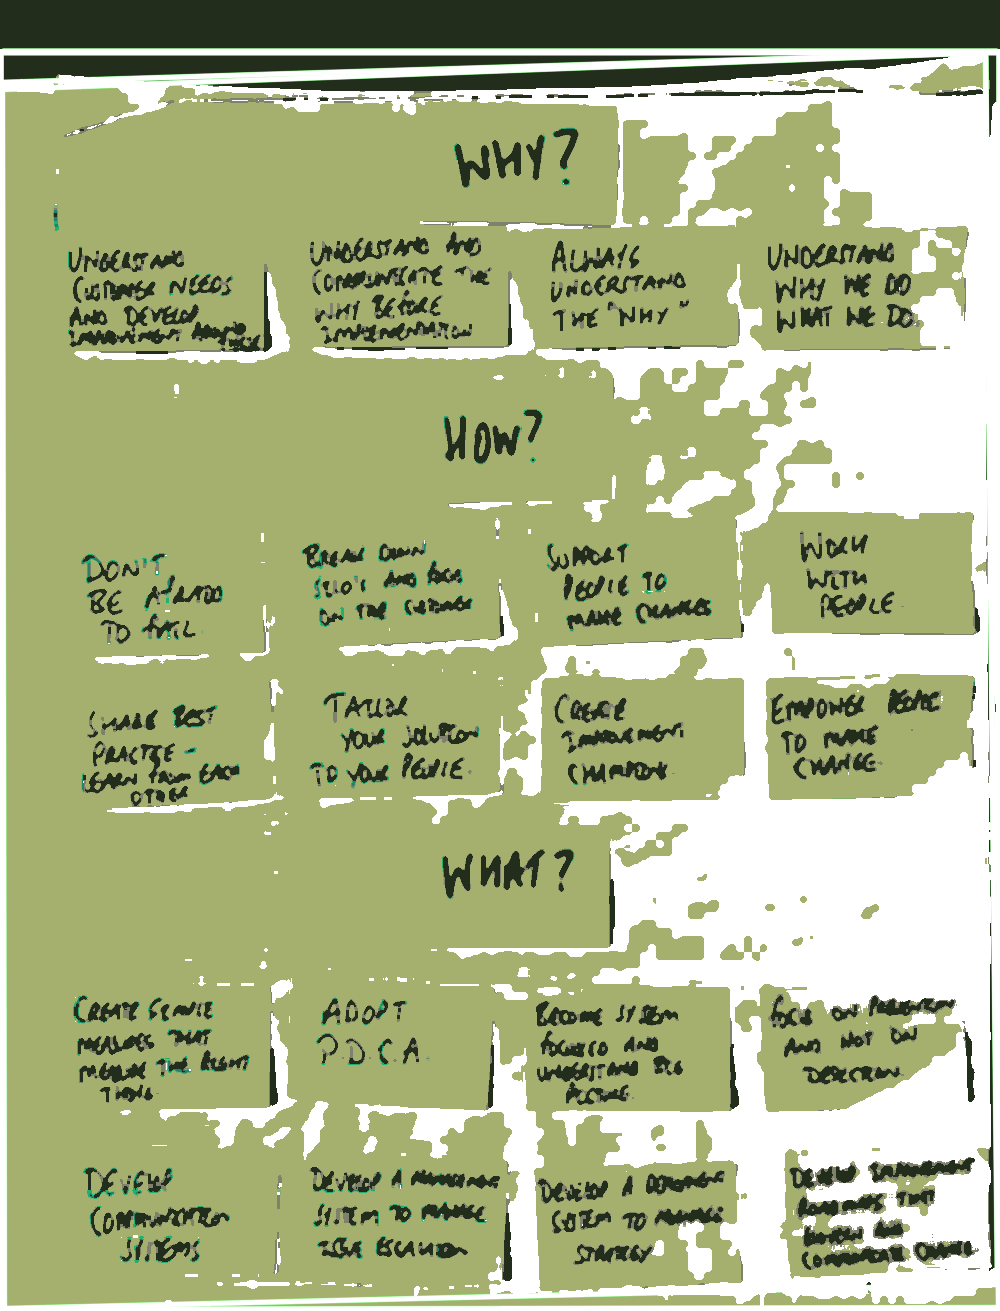 WHY?
UNDERSTAND
CUSTOMER NEEDS
AND DEVELOP
IMPROVEMENT AROUND
THESE
UNDERSTAND AND
COMMUNICATE THE
WHY BEFORE
IMPLEMENTATION
ALWAYS
UNDERSTAND
THE "WHY"
UNDERSTAND
WHY WE DO
WHAT WE DO.
HOW?
DON'T
BE AFRAID
TO FAIL
BREAK DOWN
SILO'S AND FOCUS
ON THE CUSTOMER
SUPPORT
PEOPLE TO
MAKE CHANGES
WORK
WITH
PEOPLE
SHARE BEST
PRACTICE -
LEARN FROM EACH
OTHER
TAILOR
YOUR SOLUTION
TO YOUR PEOPLE
CREATE
IMPROVEMENT
CHAMPIONS
EMPOWER PEOPLE
TO MAKE
CHANGE
WHAT?
CREATE
MEASURES THAT
MEASURE THE RIGHT
THING
ADOPT
P.D.C.A.
BECOME SYSTEM
FOCUSED AND
UNDERSTAND BIG
PICTURE
FOCUS ON PREVENTION
AND NOT ON
DETECTION
DEVELOP
COMMUNICATION
SYSTEMS
DEVELOP A MANAGEMENT
SYSTEM TO MANAGE
ISSUE ESCALATION
DEVELOP A DEPLOYMENT
SYSTEM TO MANAGE
STRATEGY
DEVELOP IMPROVEMENT
ROADMAPS THAT
AND
COMMUNICATE CHANGE